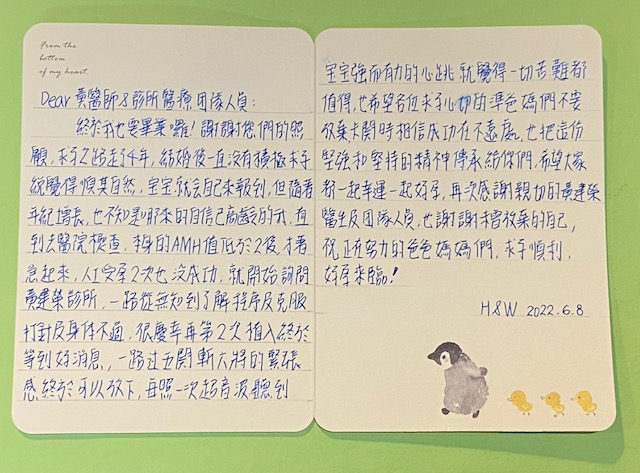 From the
bottom
of my heart.
Dear 黃醫師&診所醫療團隊人員:
終於我也要畢業囉!謝謝您們的照
顧,求子之路走了4年,結婚後一直沒有積極求子
總覺得順其自然,寶宝就會自己來報到,但隨著
年紀增長,也不知是哪來的自信已高齡的我,直
到去醫院檢查,本身的AMH值低於2後,才著
急起來,人工受孕2次也沒成功,就開始詢問
黃建榮診所,一路從無知到了解程序及克服
打針及身体不適,很慶幸再第2次植入終於
等到好消息,一路过五関斬六將的緊張
感終於可以放下,每照一次超音波聽到
宝宝強而有力的心跳就覺得一切苦難都
值得,也希望各位求子心切的準爸媽們不要
放棄卡關時相信成功在不遠處,也把這份
堅強和堅持的精神傳承給你們,希望大家
都一起幸運一起好孕,再次感謝親切的黃建榮
醫生及團隊人員,也謝謝未曾放棄的自己,
祝正在努力的爸爸媽媽們,求子順利,
好孕來臨!
H&W 2022.6.8